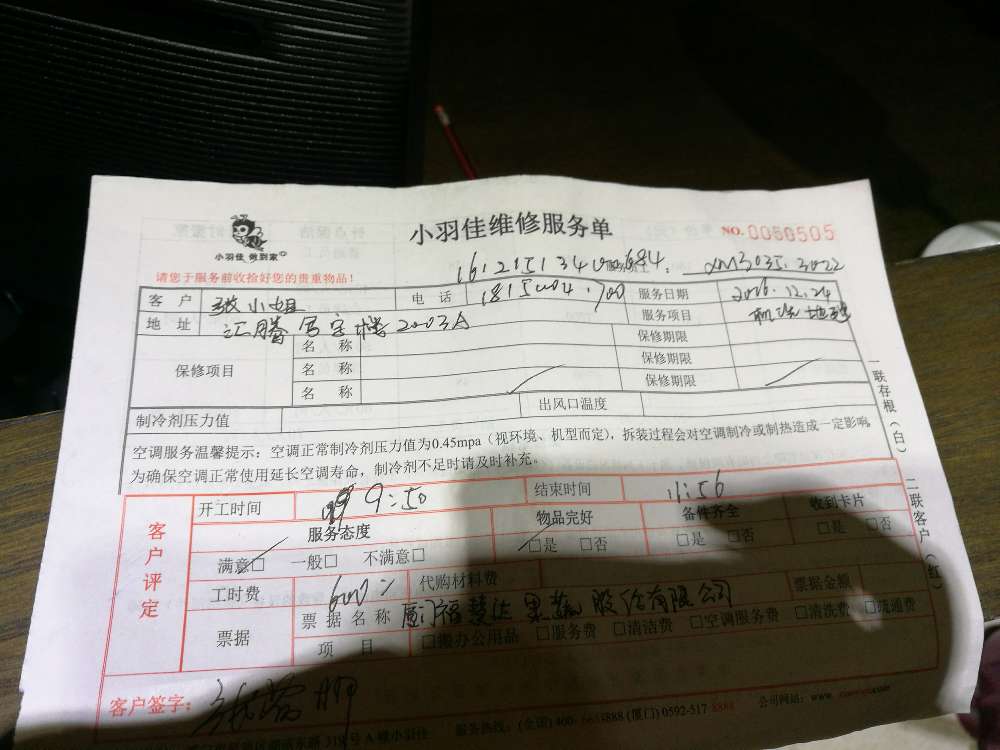 小羽佳维修服务单
NO. 0050505
小羽佳 做到家
请您于服务前收拾好您的贵重物品!
客 户 张小姐 电 话 服务日期 2016.12.24
地 址 汇腾写字楼2003A 服务项目 机洗地毯
保修项目 名 称 保修期限
名 称 保修期限
名 称 保修期限
制冷剂压力值 出风口温度
空调服务温馨提示:空调正常制冷剂压力值为0.45mpa(视环境、机型而定),拆装过程会对空调制冷或制热造成一定影响,
为确保空调正常使用延长空调寿命,制冷剂不足时请及时补充。
一联存根(白) 二联客户(红)
客户评定
开工时间 9:50 结束时间 11:56
服务态度 物品完好 备件齐全 收到卡片
满意□ 一般□ 不满意□ □是 □否 □是 □否 □是 □否
工时费 600 代购材料费
票据 票据名称 厦门福慧达果蔬股份有限公司 票据金额
项 目 □搬办公用品 □服务费 □清洁费 □空调服务费 □清洗费 □疏通费
客户签字:
服务热线: (全诺) 400- 8888 (厦门) 0592-517 8888 公司网站: www.